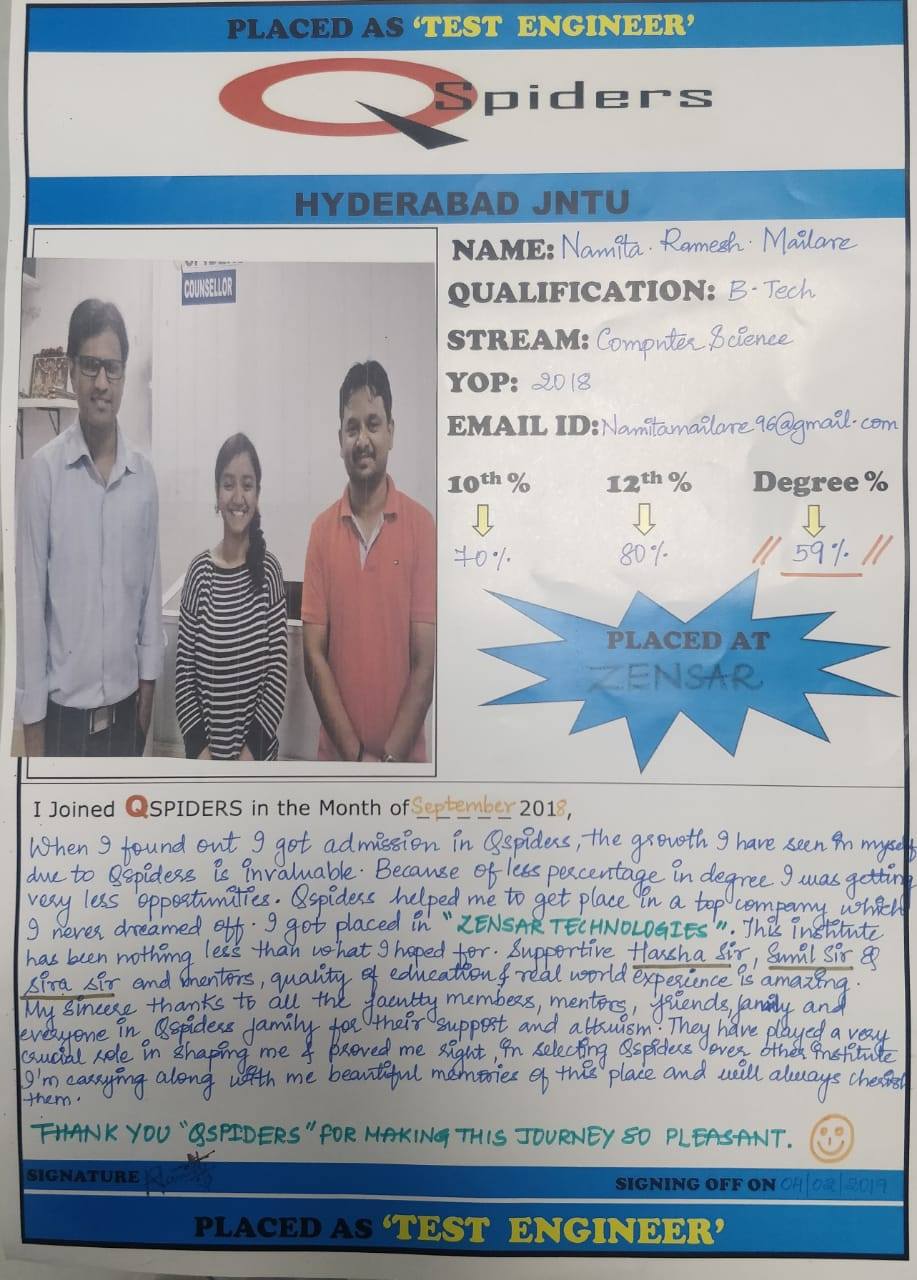 PLACED AS ‘TEST ENGINEER’
QSpiders
HYDERABAD JNTU
COUNSELLOR
NAME: Namita. Ramesh. Mailare
QUALIFICATION: B-Tech
STREAM: Computer Science
YOP: 2018
EMAIL ID: Namitamailare96@gmail.com
10th % 12th % Degree %
70% 80% // 59% //
PLACED AT
ZENSAR
I Joined QSPIDERS in the Month of September 2018,
When I found out I got admission in Qspiders, the growth I have seen in myself
due to Qspiders is invaluable. Because of less percentage in degree I was getting
very less opportunities. Qspiders helped me to get place in a top company which
I never dreamed off. I got placed in "ZENSAR TECHNOLOGIES". This institute
has been nothing less than what I hoped for. Supportive Harsha Sir, Sunil Sir &
Sira Sir and mentors, quality of education & real world experience is amazing.
My sincere thanks to all the faculty members, mentors, friends, family and
everyone in Qspiders family for their support and altruism. They have played a very
crucial role in shaping me & proved me right, in selecting Qspiders over other institute
I'm carrying along with me beautiful memories of this place and will always cherish
them.
THANK YOU "QSPIDERS" FOR MAKING THIS JOURNEY SO PLEASANT.
SIGNATURE
SIGNING OFF ON 04/02/2019
PLACED AS ‘TEST ENGINEER’